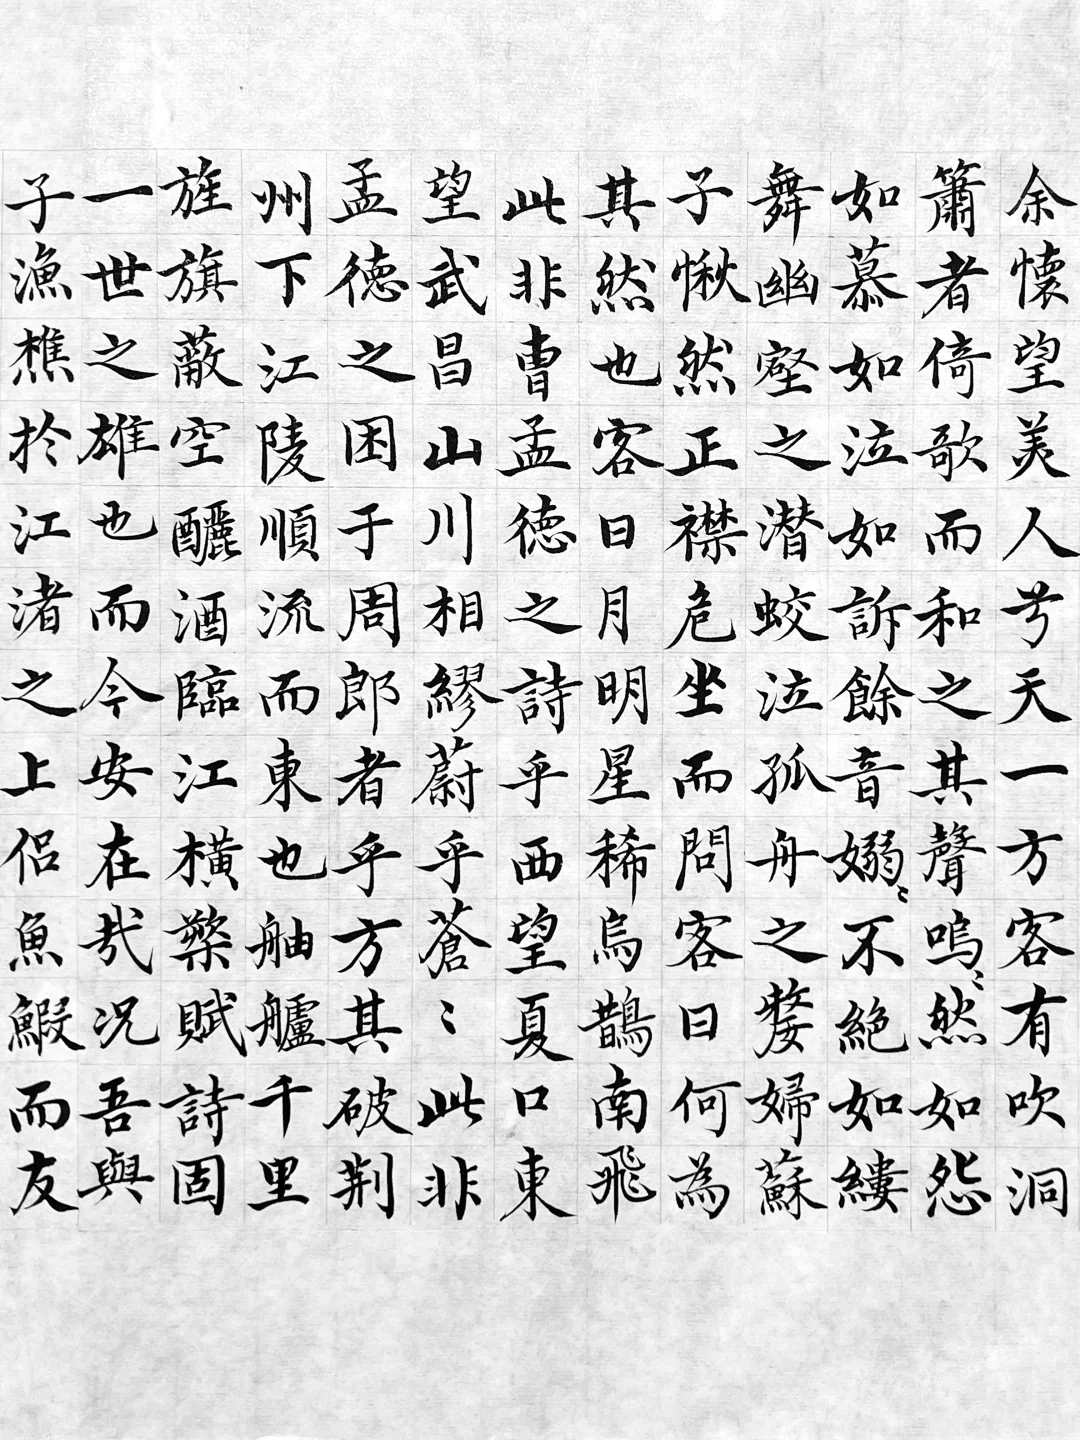 余懷望美人兮天一方客有吹洞
簫者倚歌而和之其聲嗚〻然如怨
如慕如泣如訴餘音嫋〻不絕如縷
舞幽壑之潛蛟泣孤舟之嫠婦蘇
子愀然正襟危坐而問客曰何為
其然也客曰月明星稀烏鵲南飛
此非曹孟德之詩乎西望夏口東
望武昌山川相繆蔚乎蒼〻此非
孟德之困于周郎者乎方其破荆
州下江陵順流而東也舳艫千里
旌旗蔽空釃酒臨江橫槊賦詩固
一世之雄也而今安在哉況吾與
子漁樵於江渚之上侶魚鰕而友